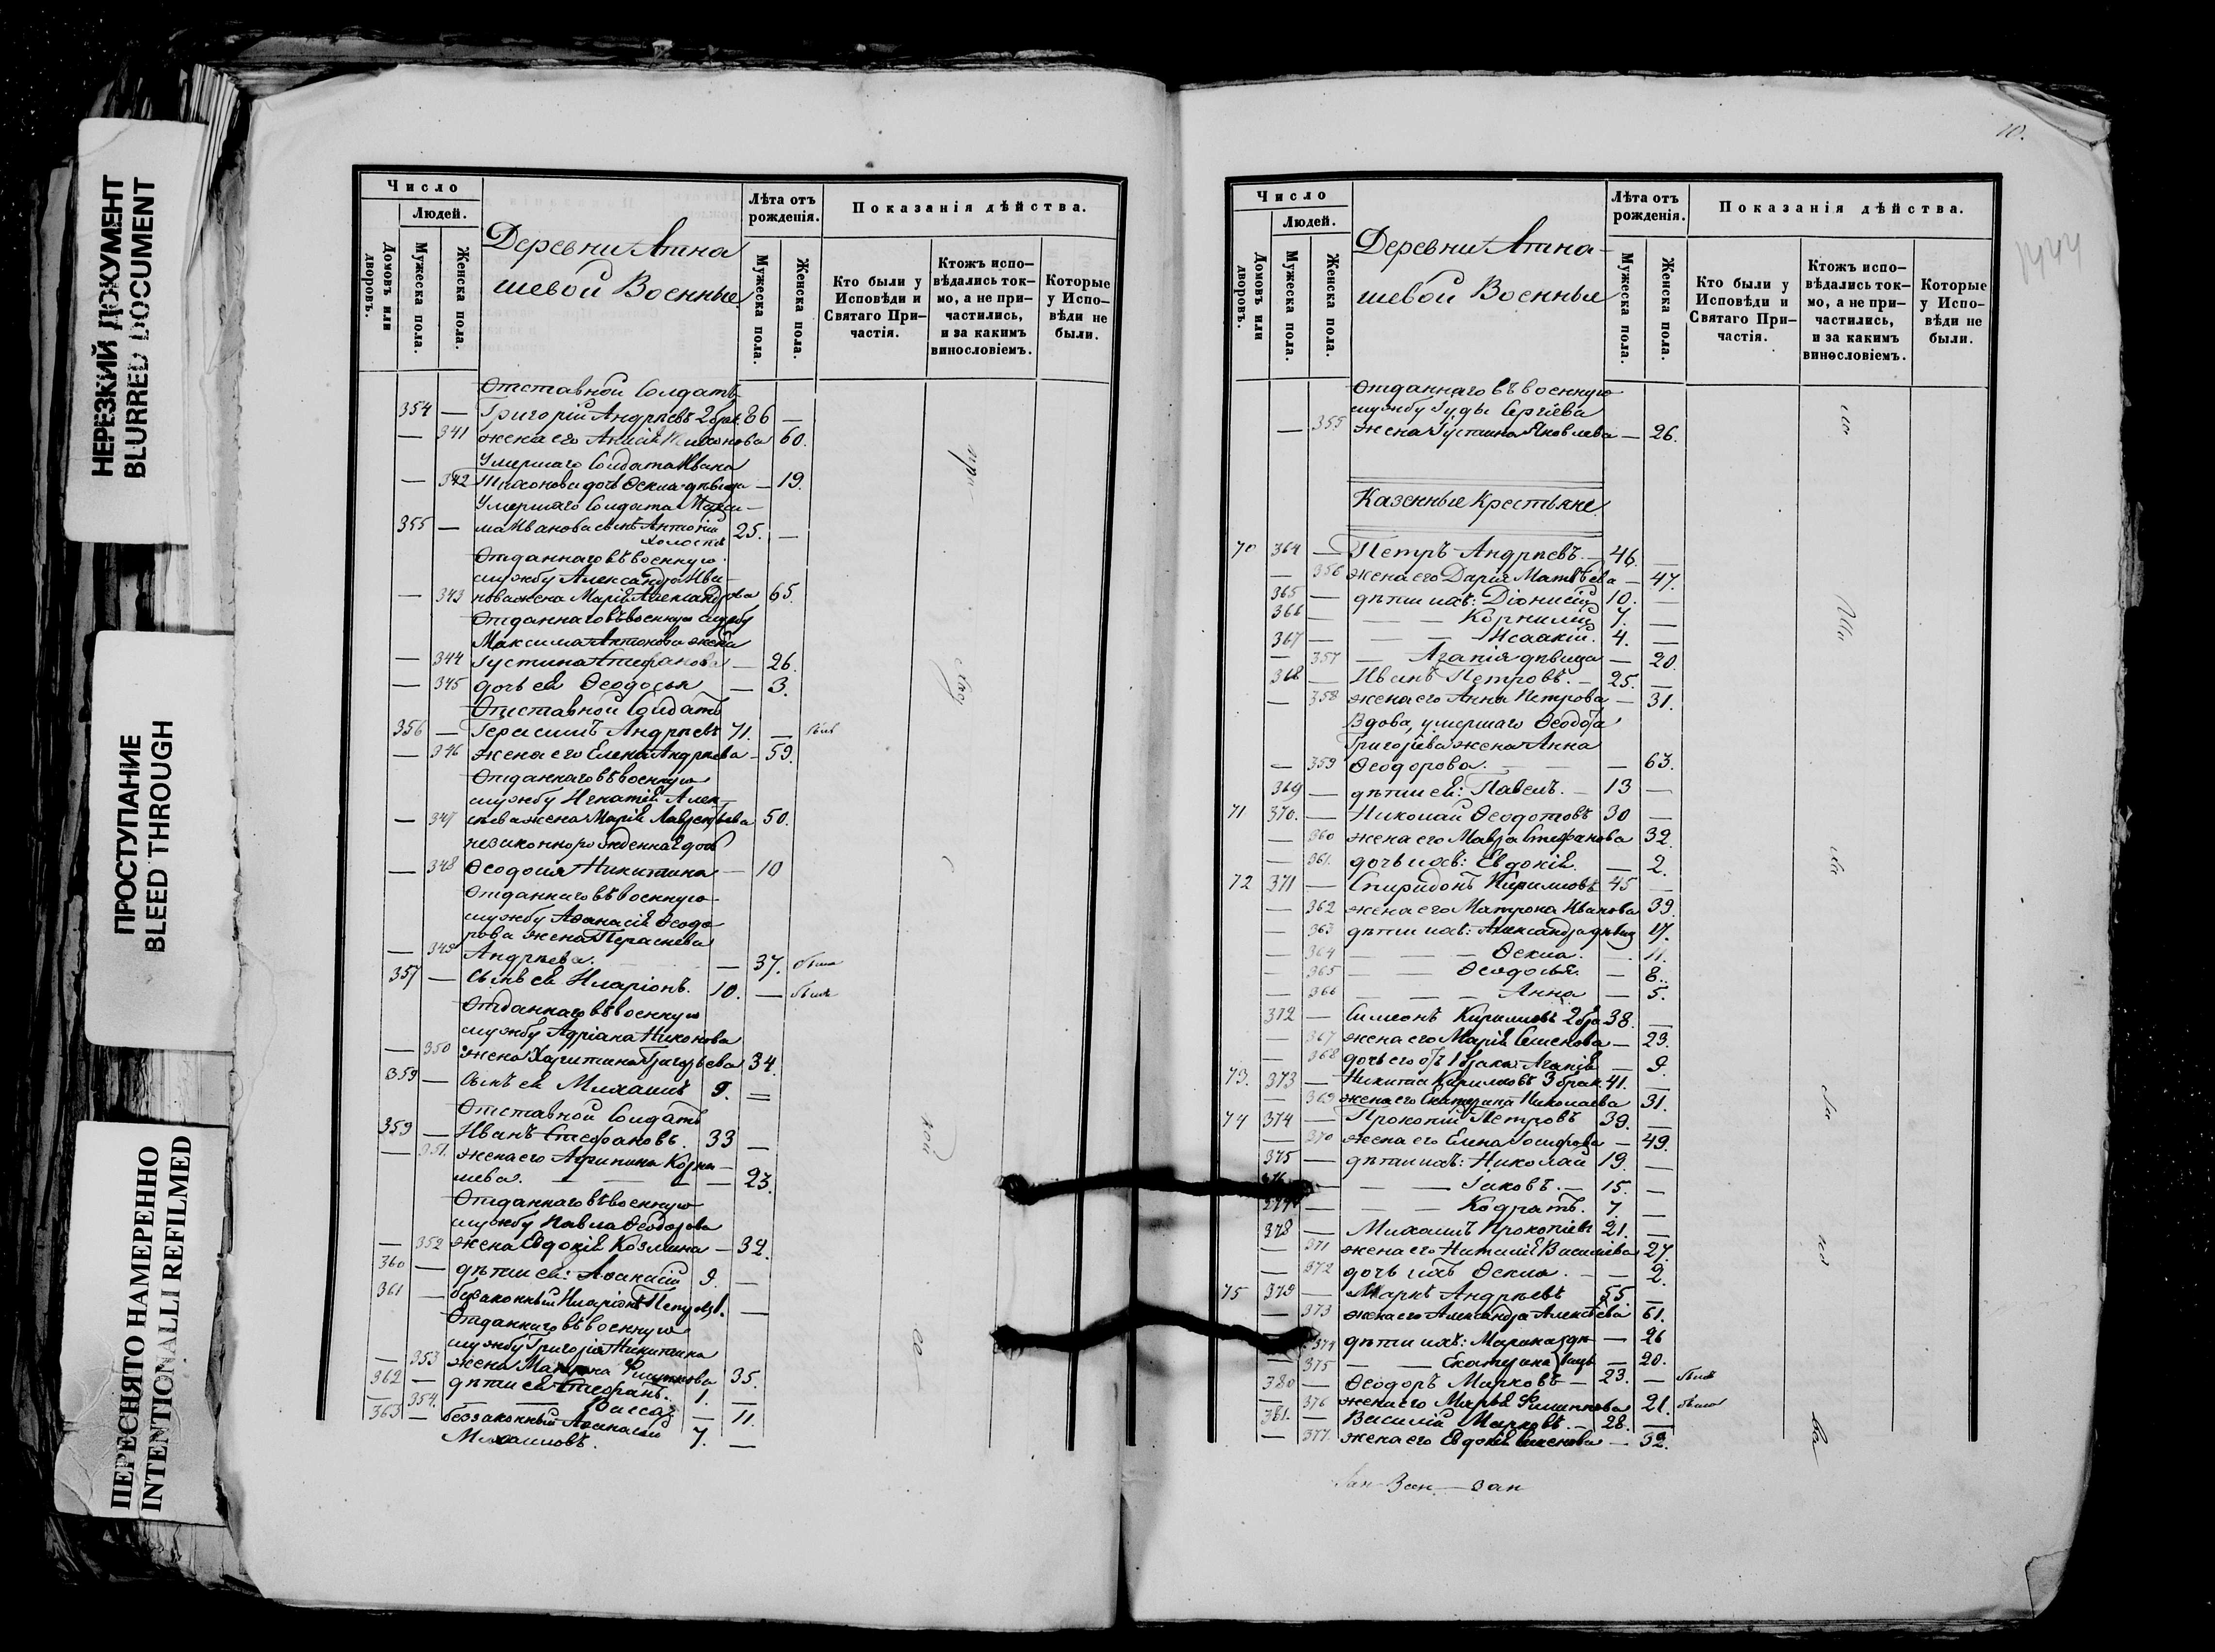 НЕРЕЗКИЙ ДОКУМЕНТ
BLURRED DOCUMENT
ПРОСТУПАНИЕ
BLEED THROUGH
ПЕРЕСНЯТО НАМЕРЕННО
INTENTIONALLI REFILMED
Число
Людей.
Домовъ или дворовъ.
Мужеска пола.
Женска пола.
Деревни Атна
шевой Военные
Лѣта отъ рожденія.
Мужеска пола.
Женска пола.
Показанія дѣйства.
Кто были у Исповѣди и Святаго При-частія.
Ктожъ испо-вѣдались ток-мо, а не при-частились, и за какимъ винословіемъ.
Которые у Испо-вѣди не были.
Отставной Солдатъ
354 — Григорій Андреевъ 2 брак. 86 —
— 341 жена его Анисія Тихонова 60.
Умершаго Солдата Ивана
— 342 Тихонова дочь Ѳекла девица — 19.
Умершаго Солдата Макси-
355 — ма Иванова сынъ Антоній 25. —
холостъ
Отданнаго въ военную
службу Александра Ива-
— 343 нова жена Марія Александрова 65.
Отданнаго въ военную службу
Максима Антонова жена
— 344 Іустина Стефанова — 26.
— 345 дочь ея Ѳеодосья — 3.
Отставной Солдатъ
356 — Герасимъ Андреевъ 71. — былъ
— 346 жена его Елена Андреева — 59.
Отданнаго въ военную
службу Игнатія Алек-
— 347 сѣева жена Марія Лаврентьева 50.
незаконнорожденная дочь
— 348 Ѳеодосія Никитина — 10
Отданнаго въ военную
службу Аѳанасія Ѳеодо-
рова жена
— 349 Андреева. — 37. была
357 — Сынъ ея Иларіонъ. 10. — былъ
Отданнаго въ военную
службу Адріана Никонова
— 350 жена Харитина Григорьева 34.
359 — Сынъ ея Михаилъ 9. —
Отставной Солдатъ
359 — Иванъ Стефановъ. 33 —
— 351. жена его Агрипина Корни-
лиева. — 23.
Отданнаго въ военную
службу Павла Ѳеодорова
— 352 жена Евдокія Козмина — 32.
360 — дѣти ея: Аѳанасій 9. —
361 — беззаконный Иларіонъ Петровъ 1. —
Отданнаго въ военную
службу Григорія Никитина
— 353 жена Матрона Филипова 35.
362 — дѣти ея Стефанъ. 1. —
— 354. Васса — 11.
363 — беззаконный Аѳанасій
Михаиловъ. 7. —
10.
Число
Людей.
Домовъ или дворовъ.
Мужеска пола.
Женска пола.
Деревни Атна-
шевой Военные
Лѣта отъ рожденія.
Мужеска пола.
Женска пола.
Показанія дѣйства.
Кто были у Исповѣди и Святаго При-частія.
Ктожъ испо-вѣдались ток-мо, а не при-частились, и за какимъ винословіемъ.
Которые у Испо-вѣди не были.
Отданнаго въ военную
службу Іуды Сергіева
— 355 жена Іустина Яковлева — 26.
Казенные Крестьяне.
70 364 — Петръ Андреевъ. — 46. —
— 356 жена его Дарія Матѳѣева — 47.
365 — дѣти ихъ: Діонисій 10. —
366 — Корнилий 7. —
367 — Исаакій. 4. —
— 357 — Агапія девица — 20.
368 — Иванъ Петровъ. — 25. —
— 358 жена его Анна Петрова — 31.
Вдова, умершаго Ѳеодота
Григорьева жена Анна
— 359 Ѳеодорова. — 63.
369 — дѣти ея: Павелъ. — 13 —
71 370. — Николай Ѳеодотовъ 30 —
— 360 жена его Мавра Стефанова 32.
— 361. дочь ихъ: Евдокія. — 2.
72 371 — Спиридонъ Кириловъ 45 —
— 362 жена его Матрона Иванова 39.
— 363 дѣти ихъ: Александра девиц 17.
— 364 — Ѳекла. — 11.
— 365 — Ѳеодосья. — 8.
— 366 — Анна — 5.
372 — Симеонъ Кириловъ 2 бра 38. —
— 367 жена его Марія Семенова — 23.
— 368 дочь его отъ 1 брака: Агапія — 9.
73. 373 — Никита Кириловъ 3 брак. 41. —
— 369 жена его Екатерина Николаева 31.
74 374 — Прокопій Петровъ 39. —
— 370 жена его Елена Іосифова — 49.
375 — дѣти ихъ: Николай 19. —
376 — Іаковъ. — 15. —
377 — Кодратъ. 7. —
378 — Михаилъ Прокопіевъ 21. —
— 371 жена его Наталія Василіева 27.
— 372 дочь ихъ Ѳекла. — 2.
75 379 — Маркъ Андреевъ 55 —
— 373 жена его Александра Алексѣева 61.
— 374 дѣти ихъ: Марина — 26
— 375 — Екатерина — 20.
380 — Ѳеодоръ Марковъ — 23. — былъ
— 376 жена его Марья Филиппова 21. была
381. — Василій Марковъ. — 28. —
— 377. жена его Евдокія Семенова — 32.